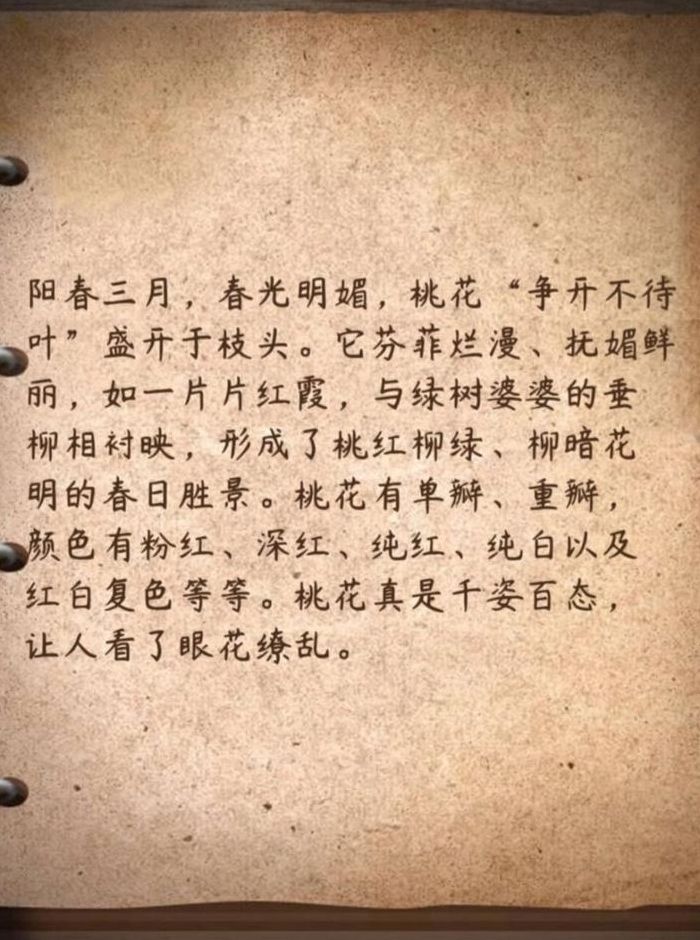 阳春三月，春光明媚，桃花“争开不待
叶”盛开于枝头。它芬菲烂漫、抚媚鲜
丽，如一片片红霞，与绿树婆婆的垂
柳相衬映，形成了桃红柳绿、柳暗花
明的春日胜景。桃花有单瓣、重瓣，
颜色有粉红、深红、纯红、纯白以及
红白复色等等。桃花真是千姿百态，
让人看了眼花缭乱。